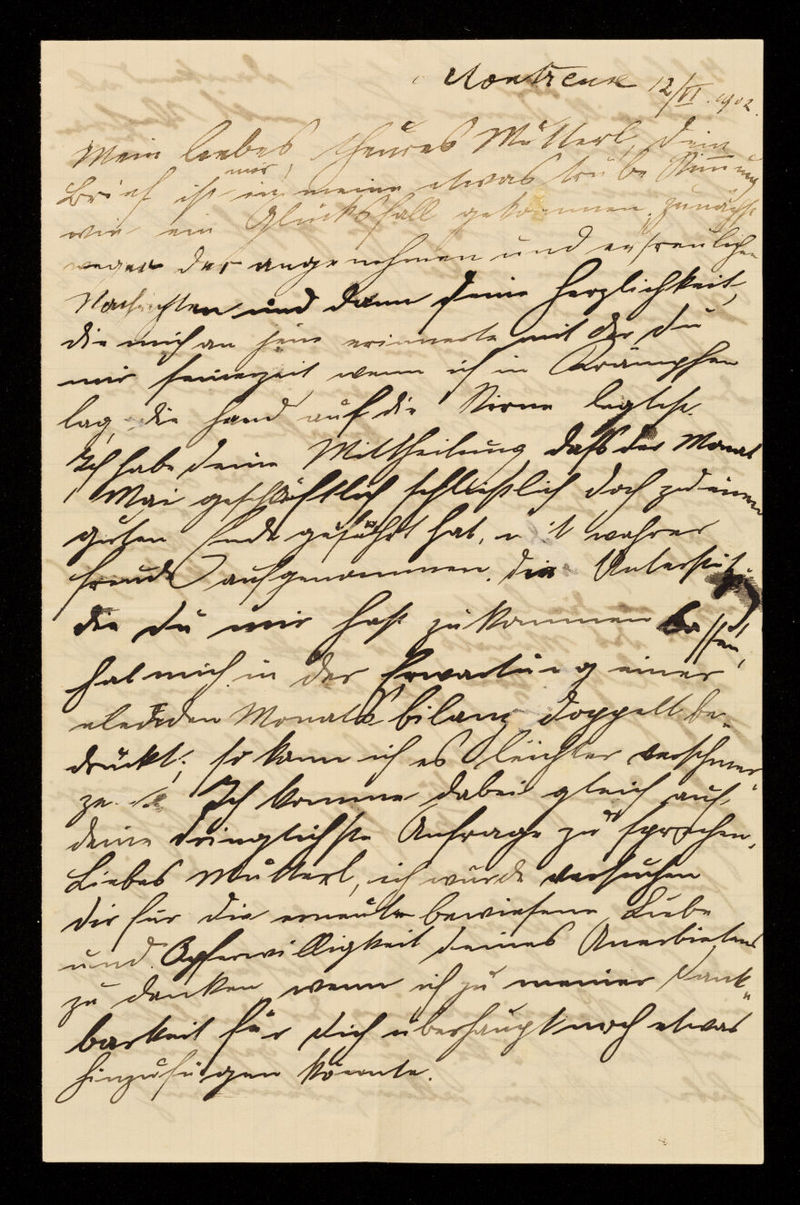 Montreux 12/VI. 1902.
Mein liebes, theures Mütterl, dein
Brief ist mir in meine etwas trübe Stimmung
wie ein Glücksfall gekommen, zunächst
wegen der angenehmen und erfreulichen
Nachrichten und dann deine Herzlichkeit,
die mich an jene erinnerte mit der du
mir seinerzeit, wenn ich in Krämpfen
lag, die Hand auf die Stirne legtest.
Ich habe deine Mittheilung dass der Monat
Mai geschäftlich schließlich doch zu einem
guten Ende geführt hat, mit wahrer
Freude aufgenommen. Die Unterstütz
die du mir hast zukommen lassen,
hat mich in der Erwartung einer
elenden Monatsbilanz doppelt be-
drückt; so kann ich es leichter verschmer-
ze Ich komme dabei gleich auf
deine dringlichste Anfrage zu sprechen.
Liebes Mütterl, ich würde versuchen
dir für die erneute bewiesene Liebe
und Opferwilligkeit deines Anerbietens
zu danken wenn ich zu meiner Dank-
barkeit für dich überhaupt noch etwas
hinzufügen könnte.